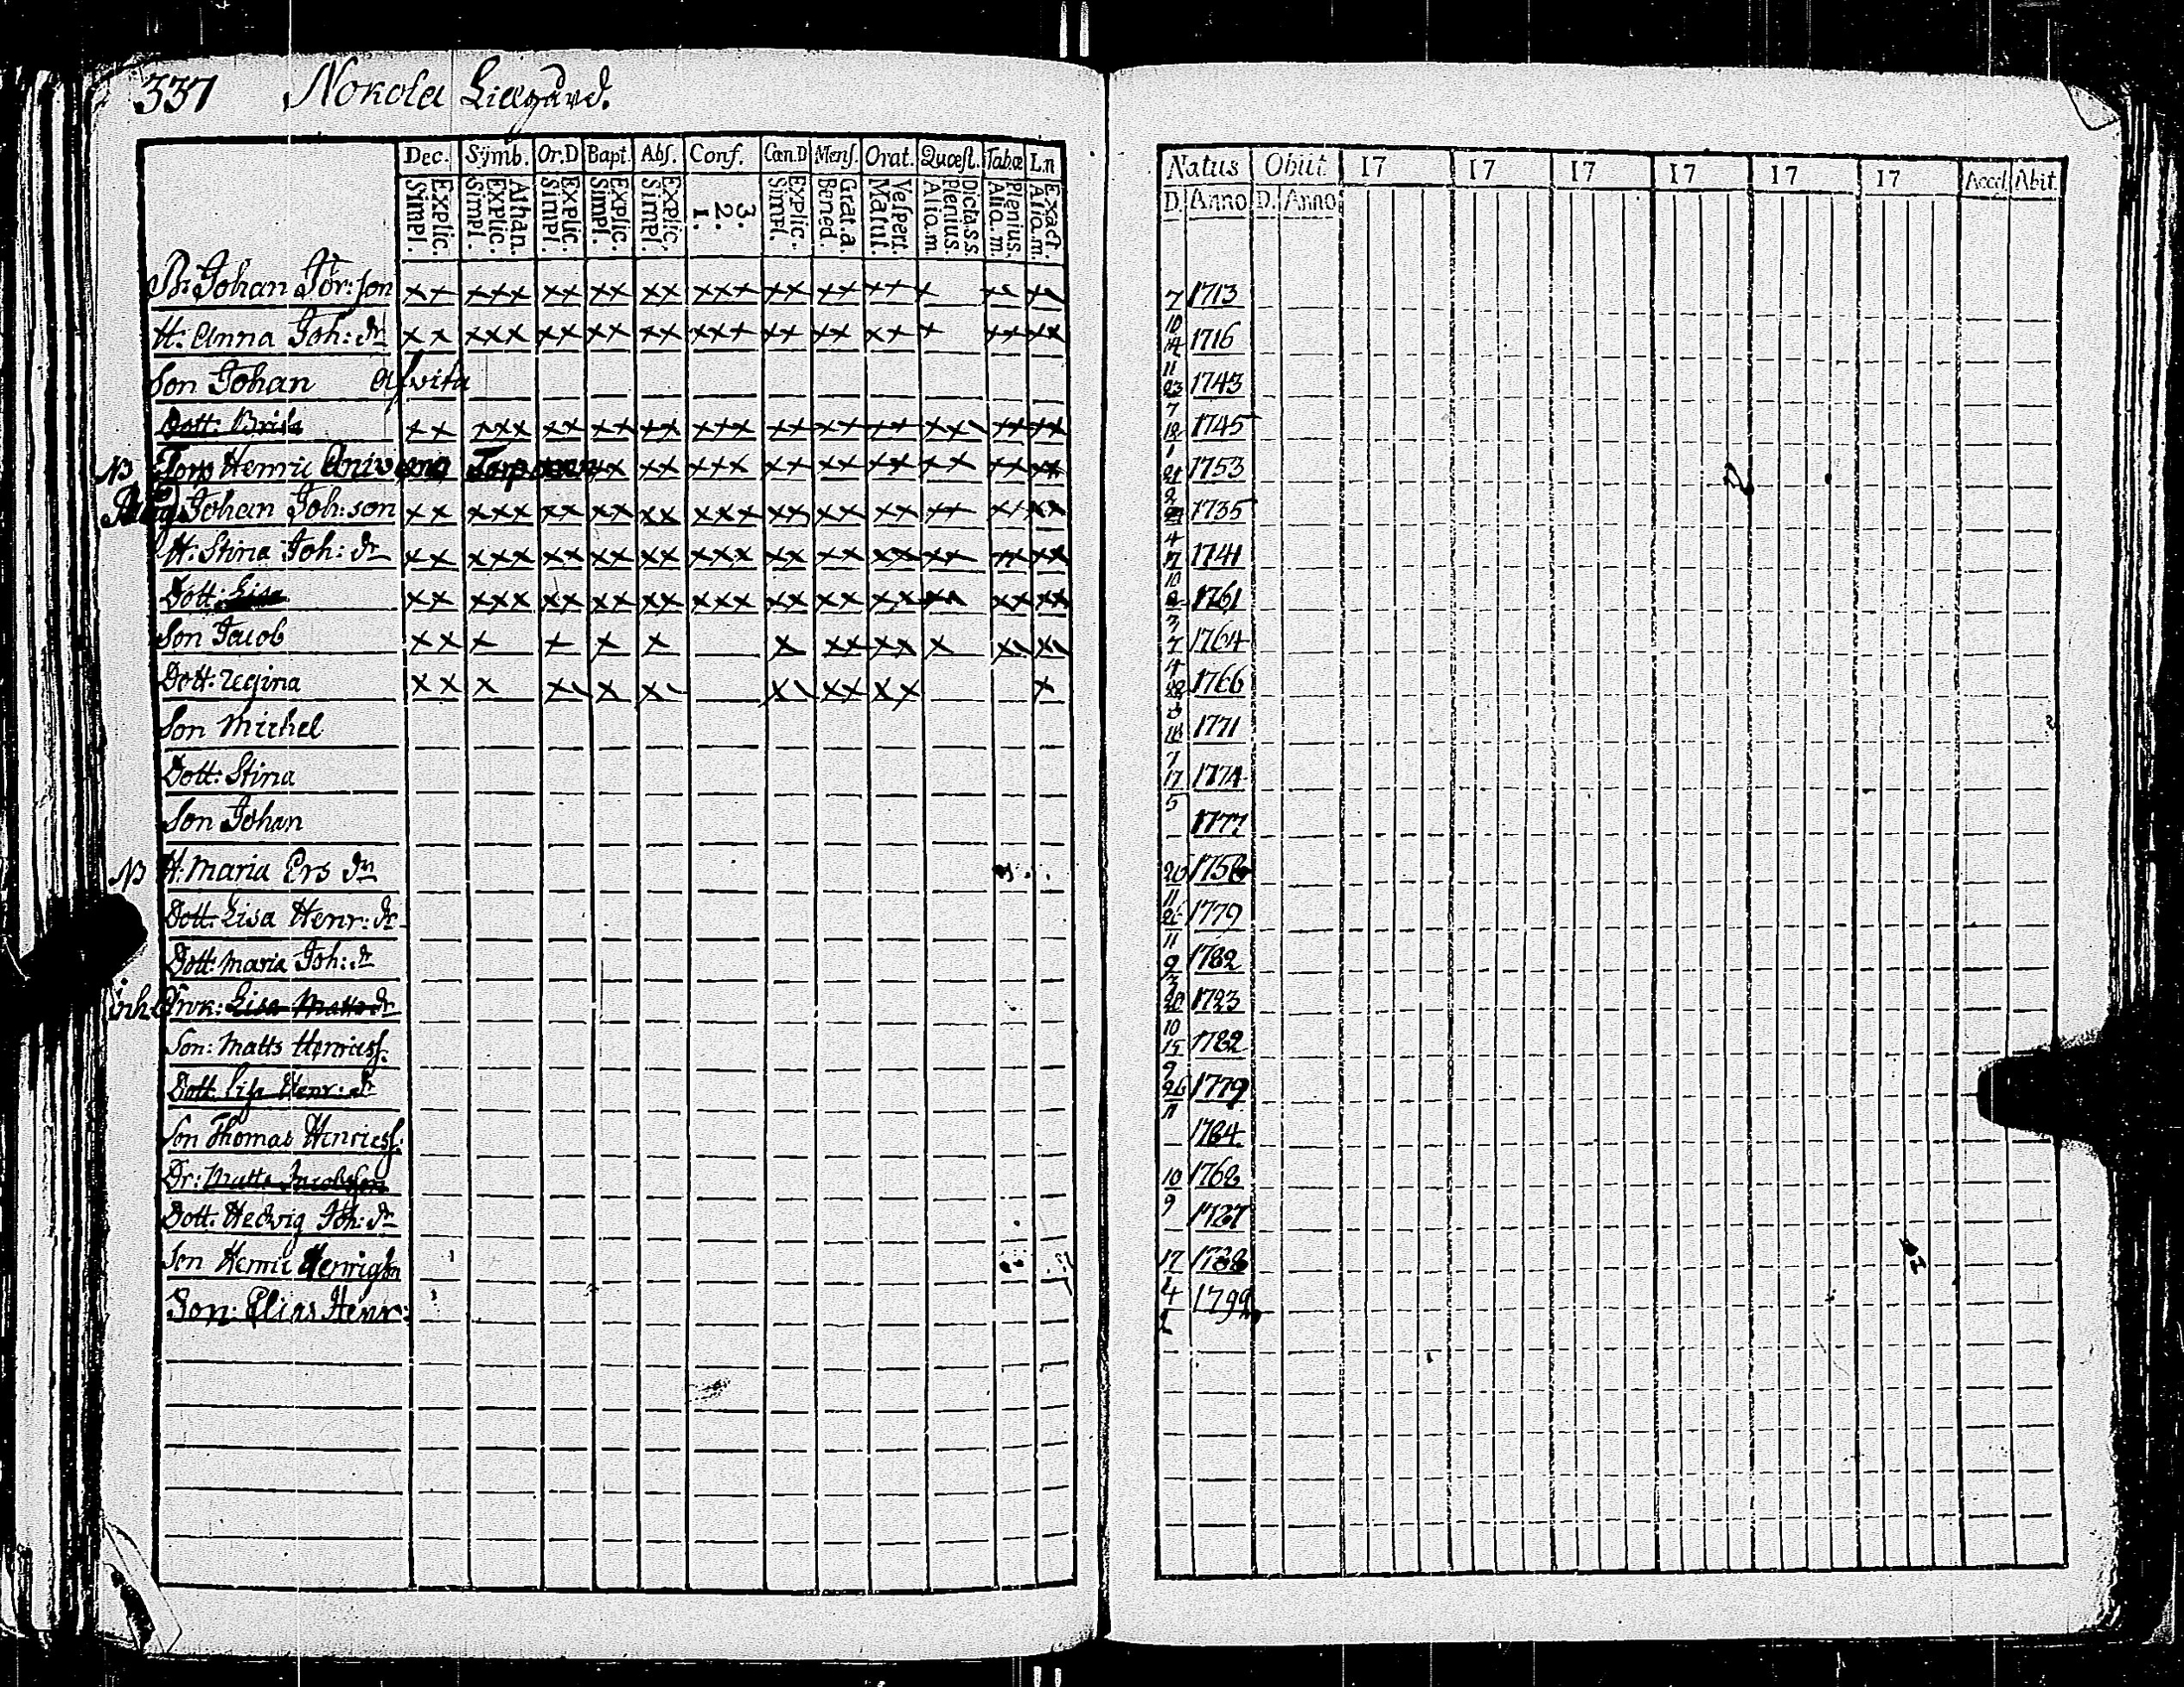 337 Nokola Lillgård.
Dec. Symb. Or.D Bapt. Abs. Conf. Cœn.D Mens. Orat. Quæst. Tabæ L.n
Explic. Simpl. Athan. Explic. Simpl. Explic. Simpl. Explic. Simpl. Explic. Simpl. 3. 2. 1. Explic. Simpl. Grat.a Bened. Vespert. Matut. Dicta.s.s. Plenius. Alio.m. Plenius. Alio.m. Exact. Alio.m.
Natus Obiit 17 17 17 17 17 17 Acced. Abit.
D. Anno D. Anno
Johan Jör:son xx xxx xx xx xx xxx xx xx xx x 7 10 1713
H: Anna Joh: dr xx xxx xx xx xx xxx xx xx xx x xx xx 14 11 1716
Son Johan Afvita 23 7 1743
Dott: Brita xx xxx xx xx xx xxx xx xx xx xx xx 1745
NB Torp Henric xx xx xxx xx xx xx xx xx xx 21 2 1753
Johan Joh:son xx xxx xx xx xx xxx xx xx xx xx xx xx 4 1735
H: Stina Joh: dr xx xxx xx xx xx xxx xx xx xx xx xx xx 17 10 1741
Dott: Lisa xx xxx xx xx xx xxx xx xx xx xx xx xx 3 1761
Son Jacob xx x x x x x xx xx x 7 1764
Dott: Regina xx x x x xx xx x 1766
Son Michel 7 1771
Dott: Stina 17 5 1774
Son Johan 1777
NB H: Maria Ers dr 20 11
Dott. Lisa Henr: dr 26 11 1779
Dott: Maria Joh: dr 9 3 1782
inh. Enk: Lisa Matts dr 20 10 1723
Son: Matts Henricss. 15 9 1782
Dott. Lisa Henr: dr 26 11 1779
Son Thomas Henricss. 1784
Dr: Matts Jacobsson 10 9 1762
Dott. Hedvig Joh: dr
Son Henric Henrigson 17
Son: Elias Henr: 4 1799